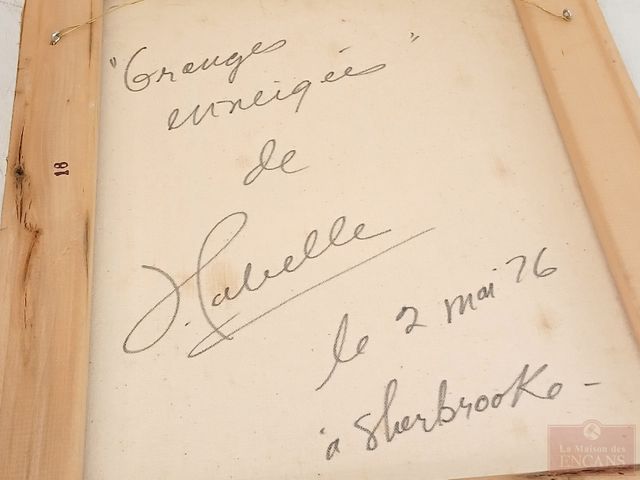 "Granges
enneigées"
de
Labelle
le 2 mai 76
à Sherbrooke -
18
La Maison des
ENCANS